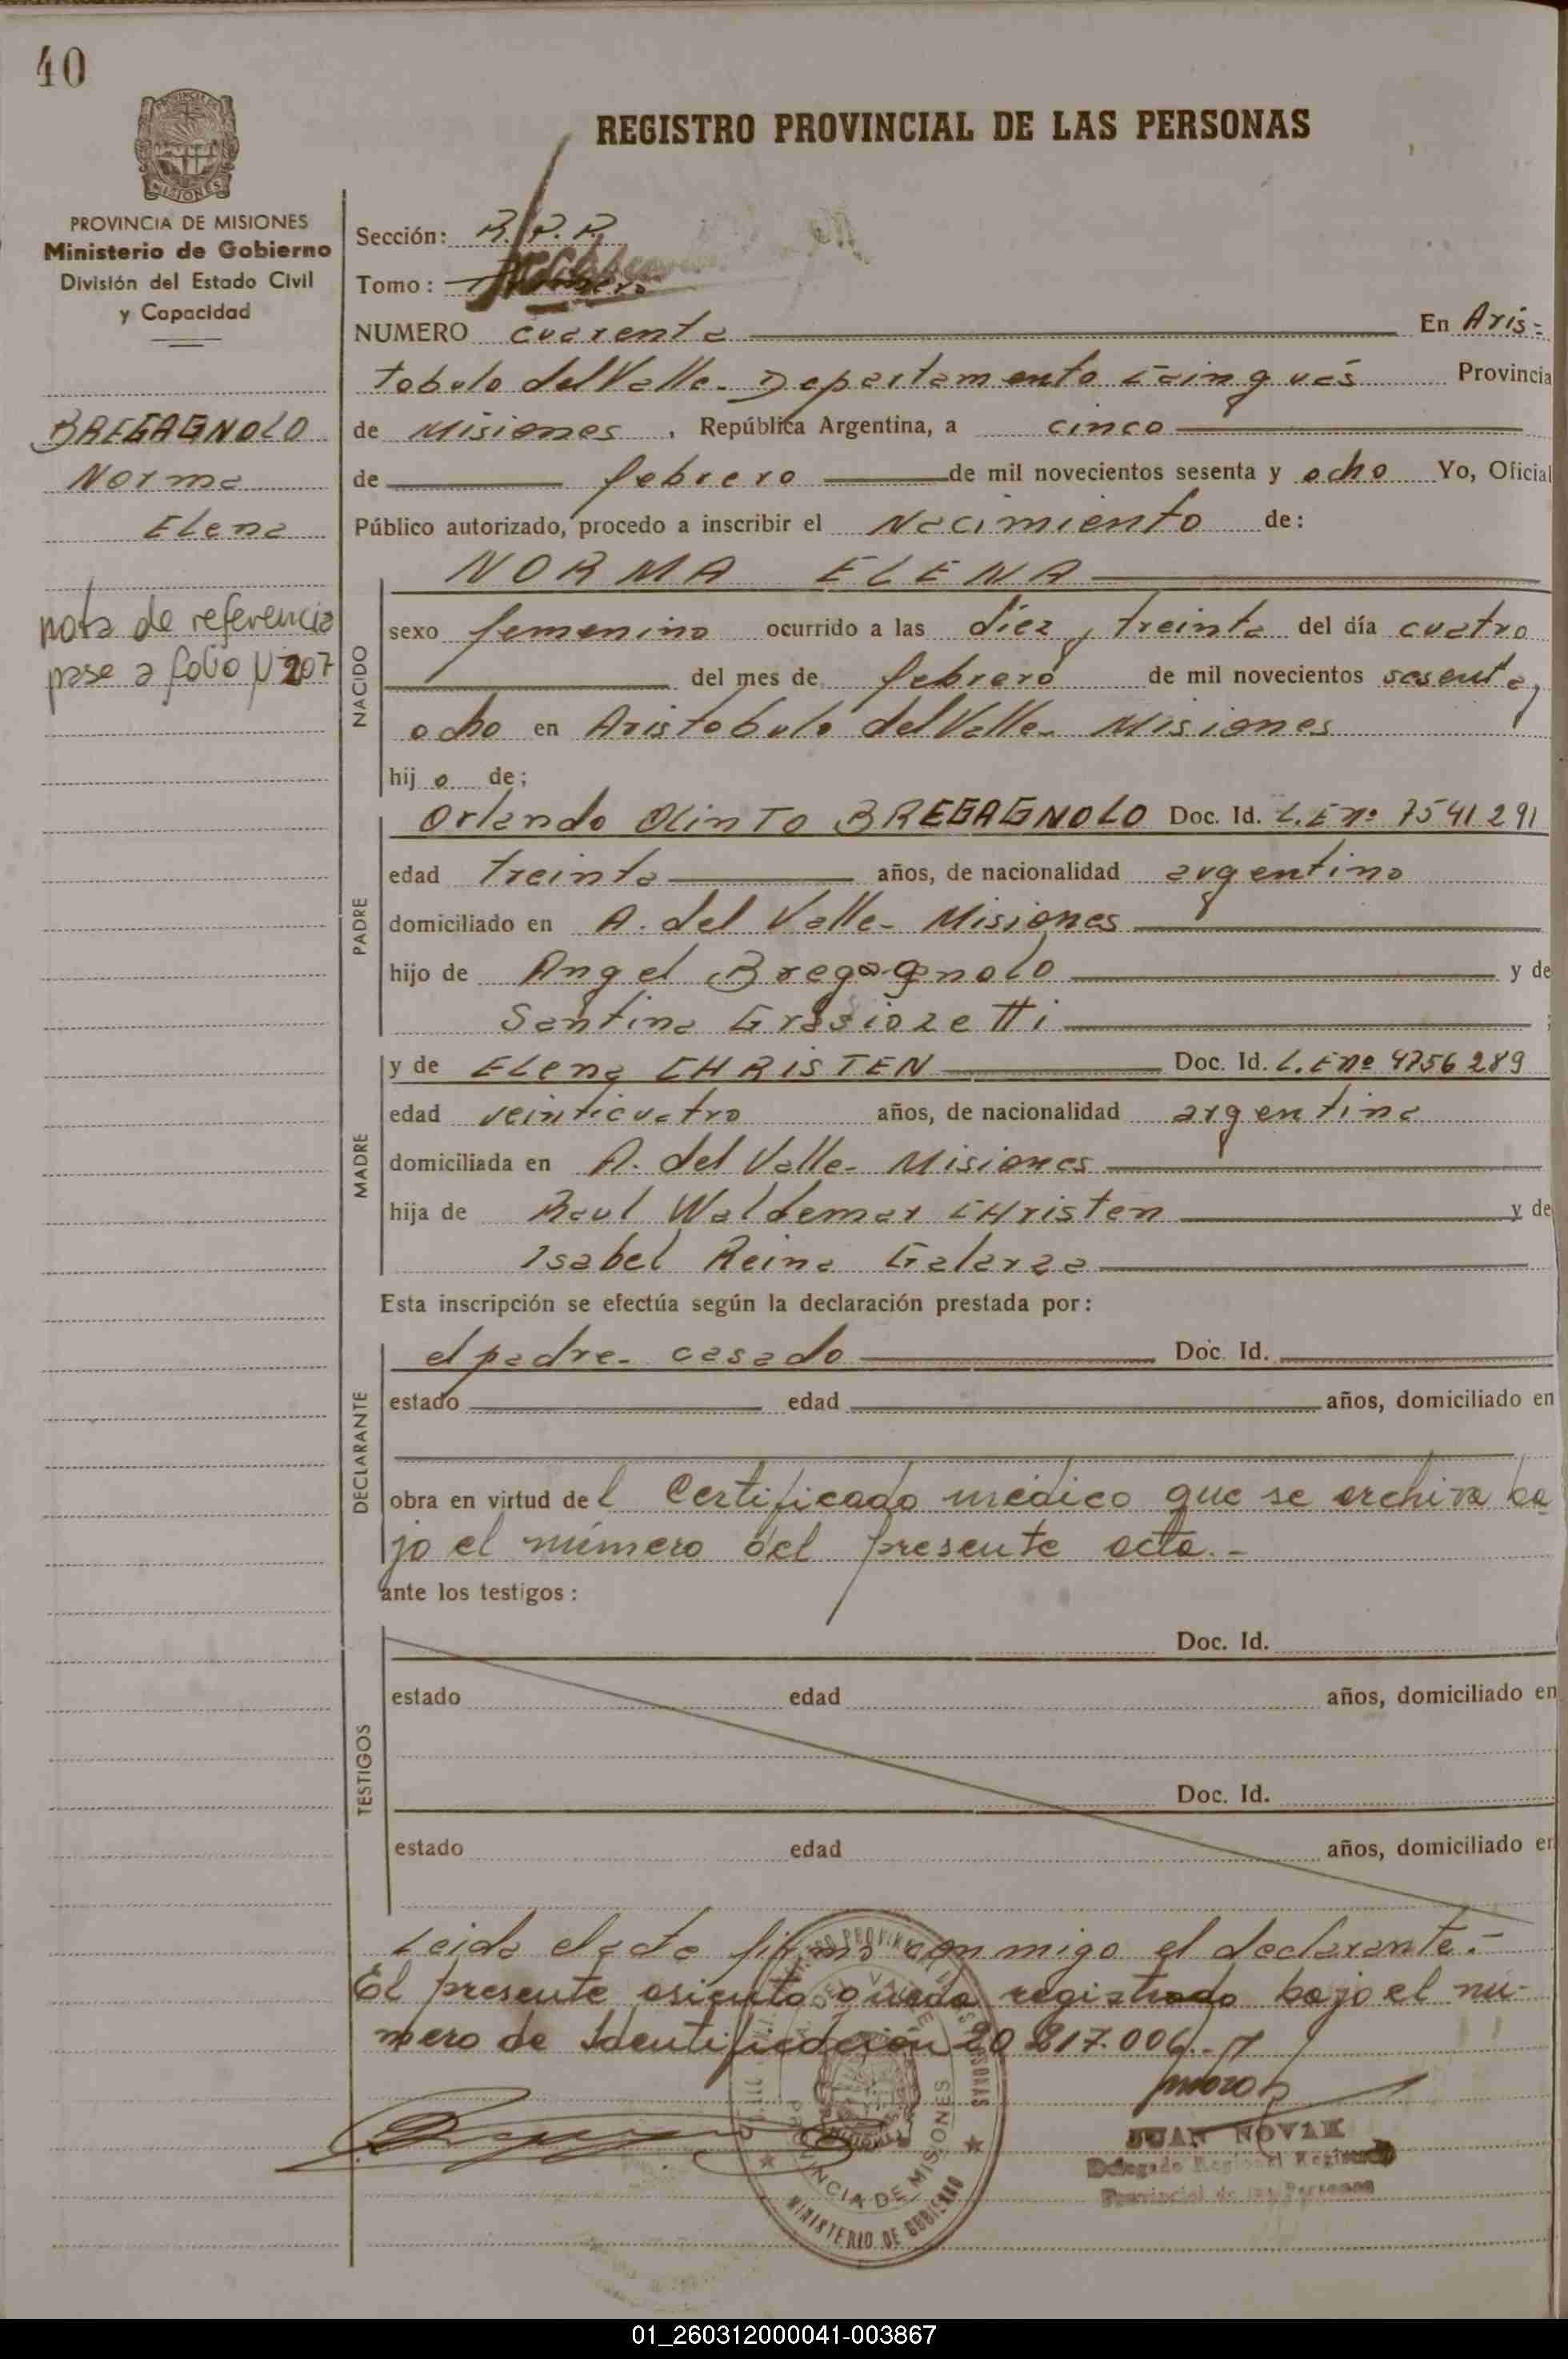 40
PROVINCIA DE MISIONES
Ministerio de Gobierno
División del Estado Civil
y Capacidad
BREGAGNOLO
Norma
Elena
nota de referencia
pase a folio N 207
REGISTRO PROVINCIAL DE LAS PERSONAS
Sección: R.P.P.
Tomo: Primero
NUMERO cuarenta En Aris-
tobulo del Valle- Departamento Cainguás Provincia
de Misiones, República Argentina, a cinco
de febrero de mil novecientos sesenta y ocho Yo, Oficial
Público autorizado, procedo a inscribir el Nacimiento de:
NORMA ELENA
NACIDO
sexo femenino ocurrido a las diez y treinta del día cuatro
del mes de febrero de mil novecientos sesenta y
ocho en Aristobulo del Valle- Misiones
hijo de;
PADRE
Orlando Olinto BREGAGNOLO Doc. Id. L.E nº 7541291
edad treinta años, de nacionalidad argentino
domiciliado en A. del Valle- Misiones
hijo de Angel Bregagnolo y de
Santina Grasiozetti ;
MADRE
y de Elena CHRISTEN Doc. Id. L.E nº 4756289
edad veinticuatro años, de nacionalidad argentina
domiciliada en A. del Valle- Misiones
hija de Raul Waldemar CHristen y de
Isabel Reina Galarza
Esta inscripción se efectúa según la declaración prestada por:
DECLARANTE
el padre- casado Doc. Id.
estado edad años, domiciliado en
obra en virtud del Certificado médico que se archiva ba
jo el número del presente acta.-
ante los testigos:
TESTIGOS
Doc. Id.
estado edad años, domiciliado en
Doc. Id.
estado edad años, domiciliado en
Leida el acta firma conmigo el declarante.-
El presente asiento queda registrado bajo el nú-
mero de Identificación 20.217.006.-
PROVINCIA DE MISIONES
MINISTERIO DE GOBIERNO
JUAN NOVAK
Delegado Regional Registro
Provincial de las Personas
01_260312000041-003867